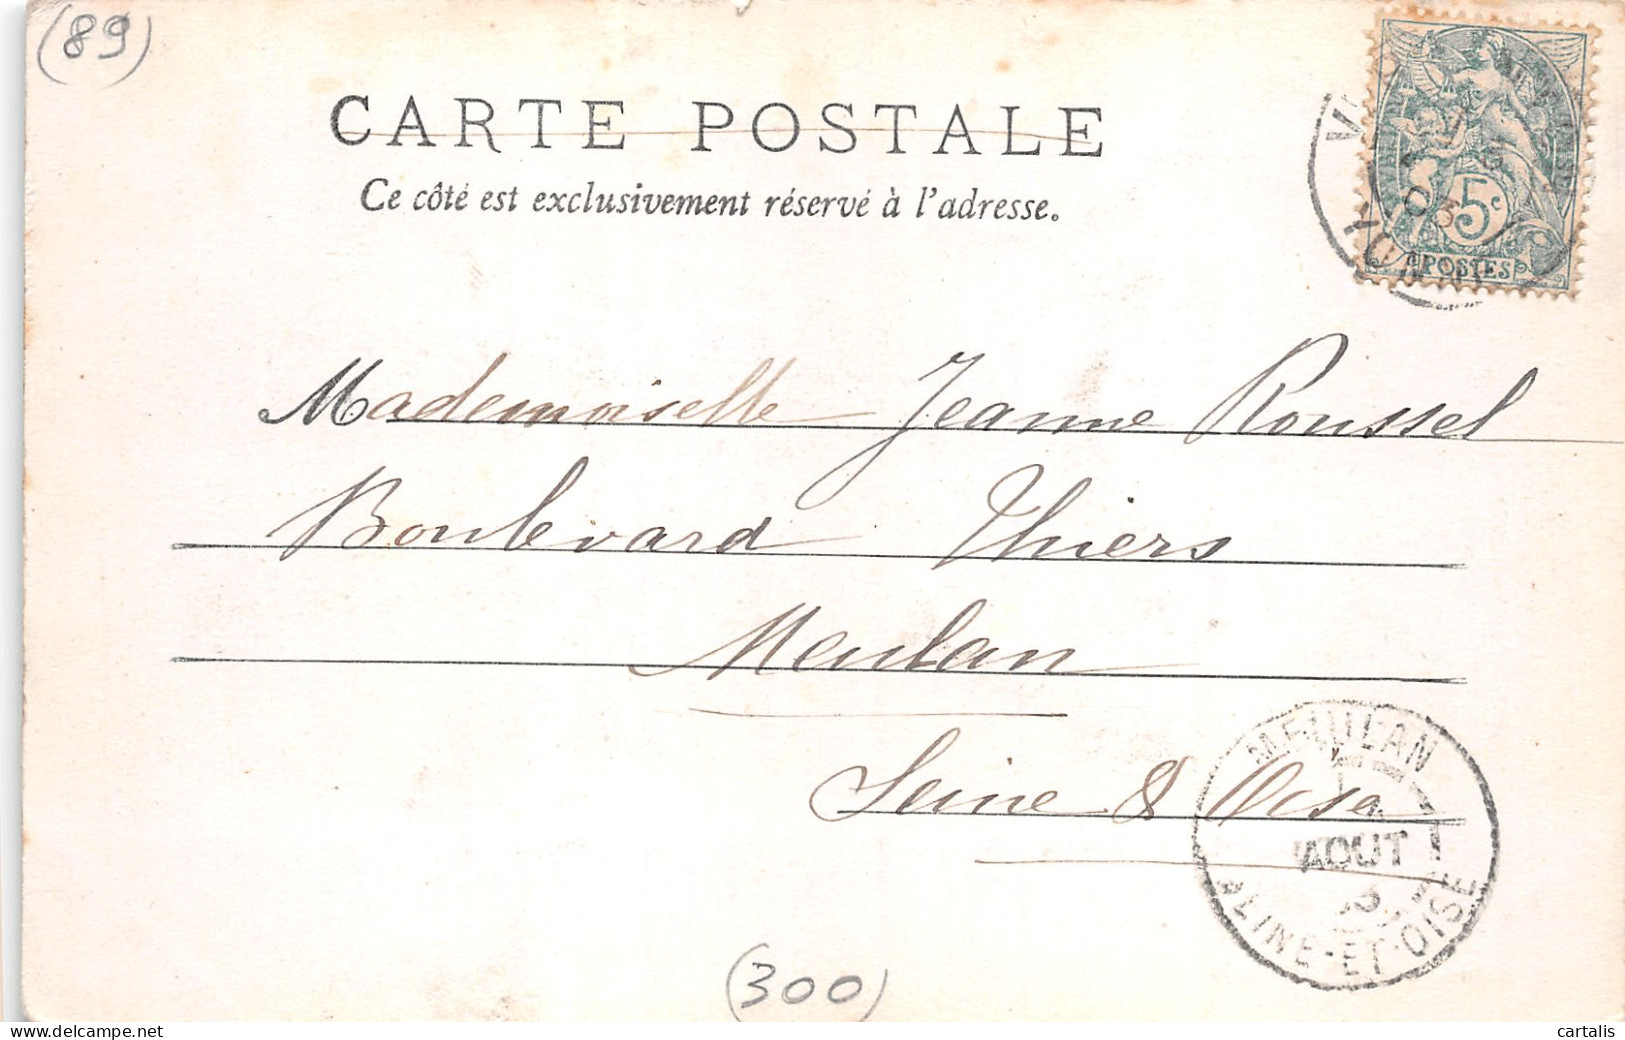 (89)
CARTE POSTALE
Ce côté est exclusivement réservé à l'adresse.
5c
POSTES
YONNE
Mademoiselle Jeanne Roussel
Boulevard Thiers
Meulan
Seine & Oise
MEULAN
AOUT
SEINE-ET-OISE
(300)
cartalis